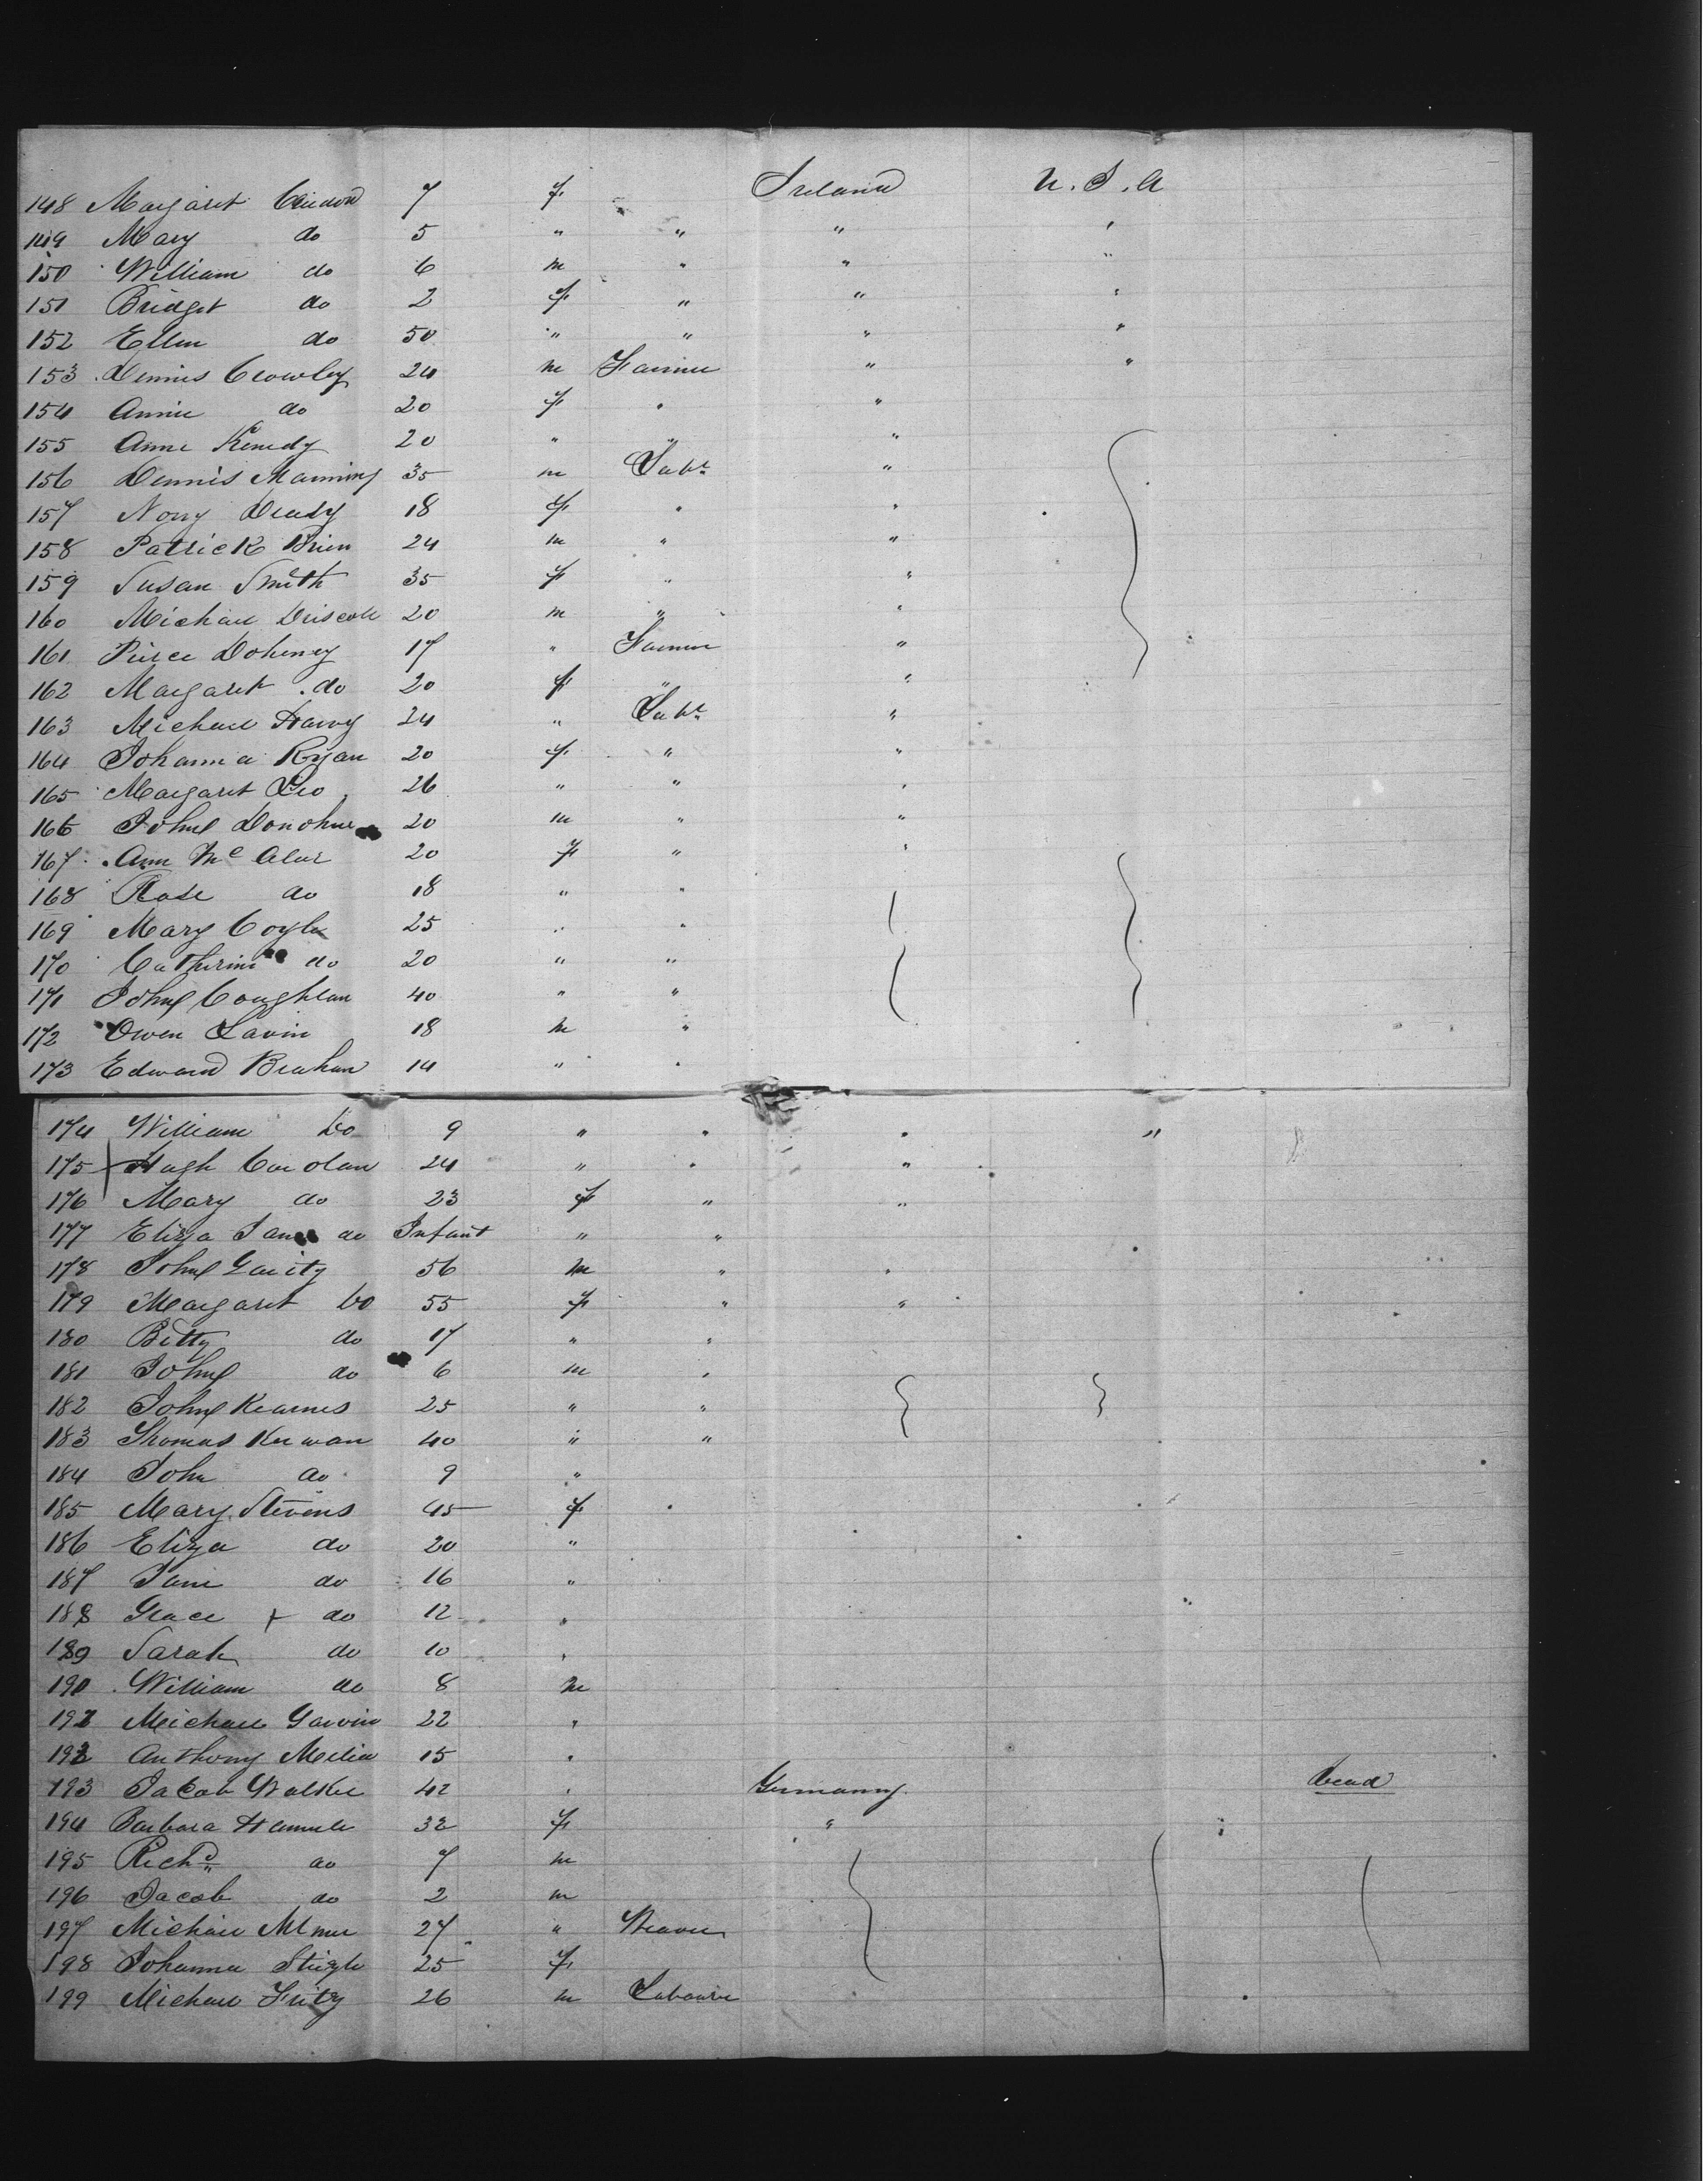 148 Margaret 7 f Ireland U.S.A
149 Mary do 5 " " " "
150 William do 6 m " " "
151 Bridget do 2 f " " "
152 Ellen do 50 " " " "
153 Dennis Crowley 24 m Farmer " "
154 Annie do 20 f " "
155 Anne Kenedy 20 " " "
156 Dennis Manning 35 m Labr "
157 Nory Deady 18 f " "
158 Patrick Brien 24 m " "
159 Susan Smith 35 f " "
160 Michael Driscoll 20 m " "
161 Pierce Doheney 17 " Farmer "
162 Margaret do 20 f " "
163 Michael Harvy 24 " Labr "
164 Johanna Ryan 20 f " "
165 Margaret Leo 26 " " "
166 John Donohue 20 m " "
167 Ann Mc 20 f " "
168 Rose do 18 " "
169 Mary Coyle 25 " "
170 Catherine do 20 " "
171 John Coughlan 40 " "
172 Owen Lavin 18 m "
173 Edward 14 " "
174 William Do 9 " " " "
175 Hugh Carolan 24 " " "
176 Mary do 23 f " "
177 Eliza Jane do Infant " "
178 John Garity 56 m " "
179 Margaret Do 55 f " "
180 Betty do 17 " "
181 John do 6 m "
182 John Kearnes 25 " "
183 Thomas Kerwan 40 " "
184 John do 9 "
185 Mary Stevens 45 f "
186 Eliza do 20 "
187 Jane do 16 "
188 Grace do 12 "
189 Sarah do 10 "
190 William do 8 m
191 Michael Garvin 22 "
192 Anthony Melia 15 "
193 Jacob Walker 42 " Germany Dead
194 Barbara 32 f "
195 Richd do 7 m
196 Jacob do 2 m
197 Michael 27 " Weaver
198 Johanna 25 f
199 Michael Fritz 26 m Labourer